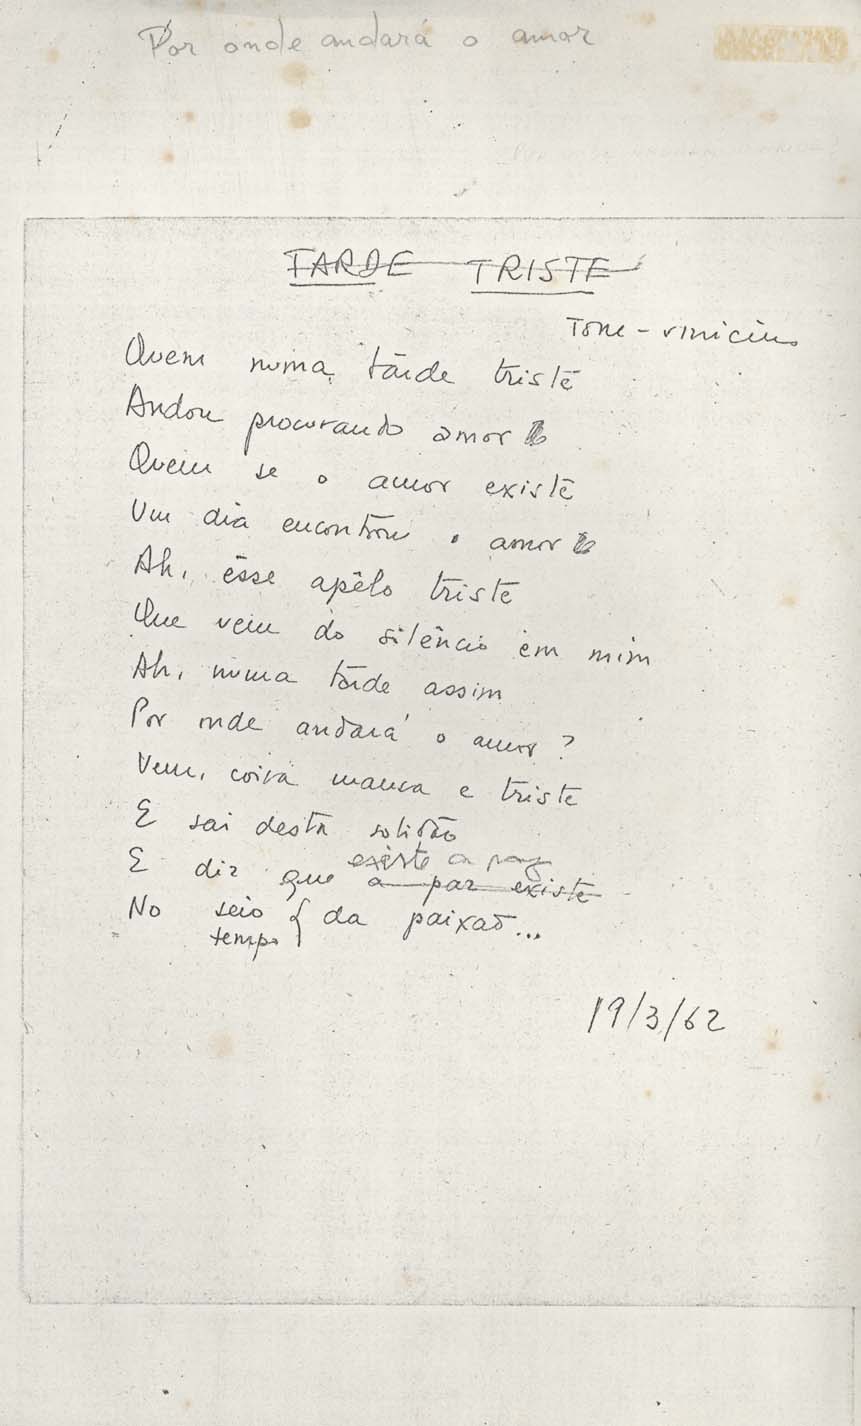 Por onde andará o amor
TARDE TRISTE
Tom - Vinicius
Quem numa tarde triste
Andou procurando amor
Quem se o amor existe
Um dia encontrou o amor
Ah, êsse apêlo triste
Que vem do silêncio em mim
Ah, numa tarde assim
Por onde andará o amor?
Vem, coisa mansa e triste
E sai desta solidão
existe a paz
E diz que a paz existe
No seio { da paixão...
tempo
19/3/62